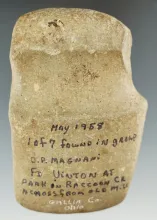 MAY 1958
1 of 7 found in group
O.P. MAGNANI
Ft VINTON AT
PARK on RACCOON CR
ACROSS FROM OLD
GALLIA Co.
OHIO